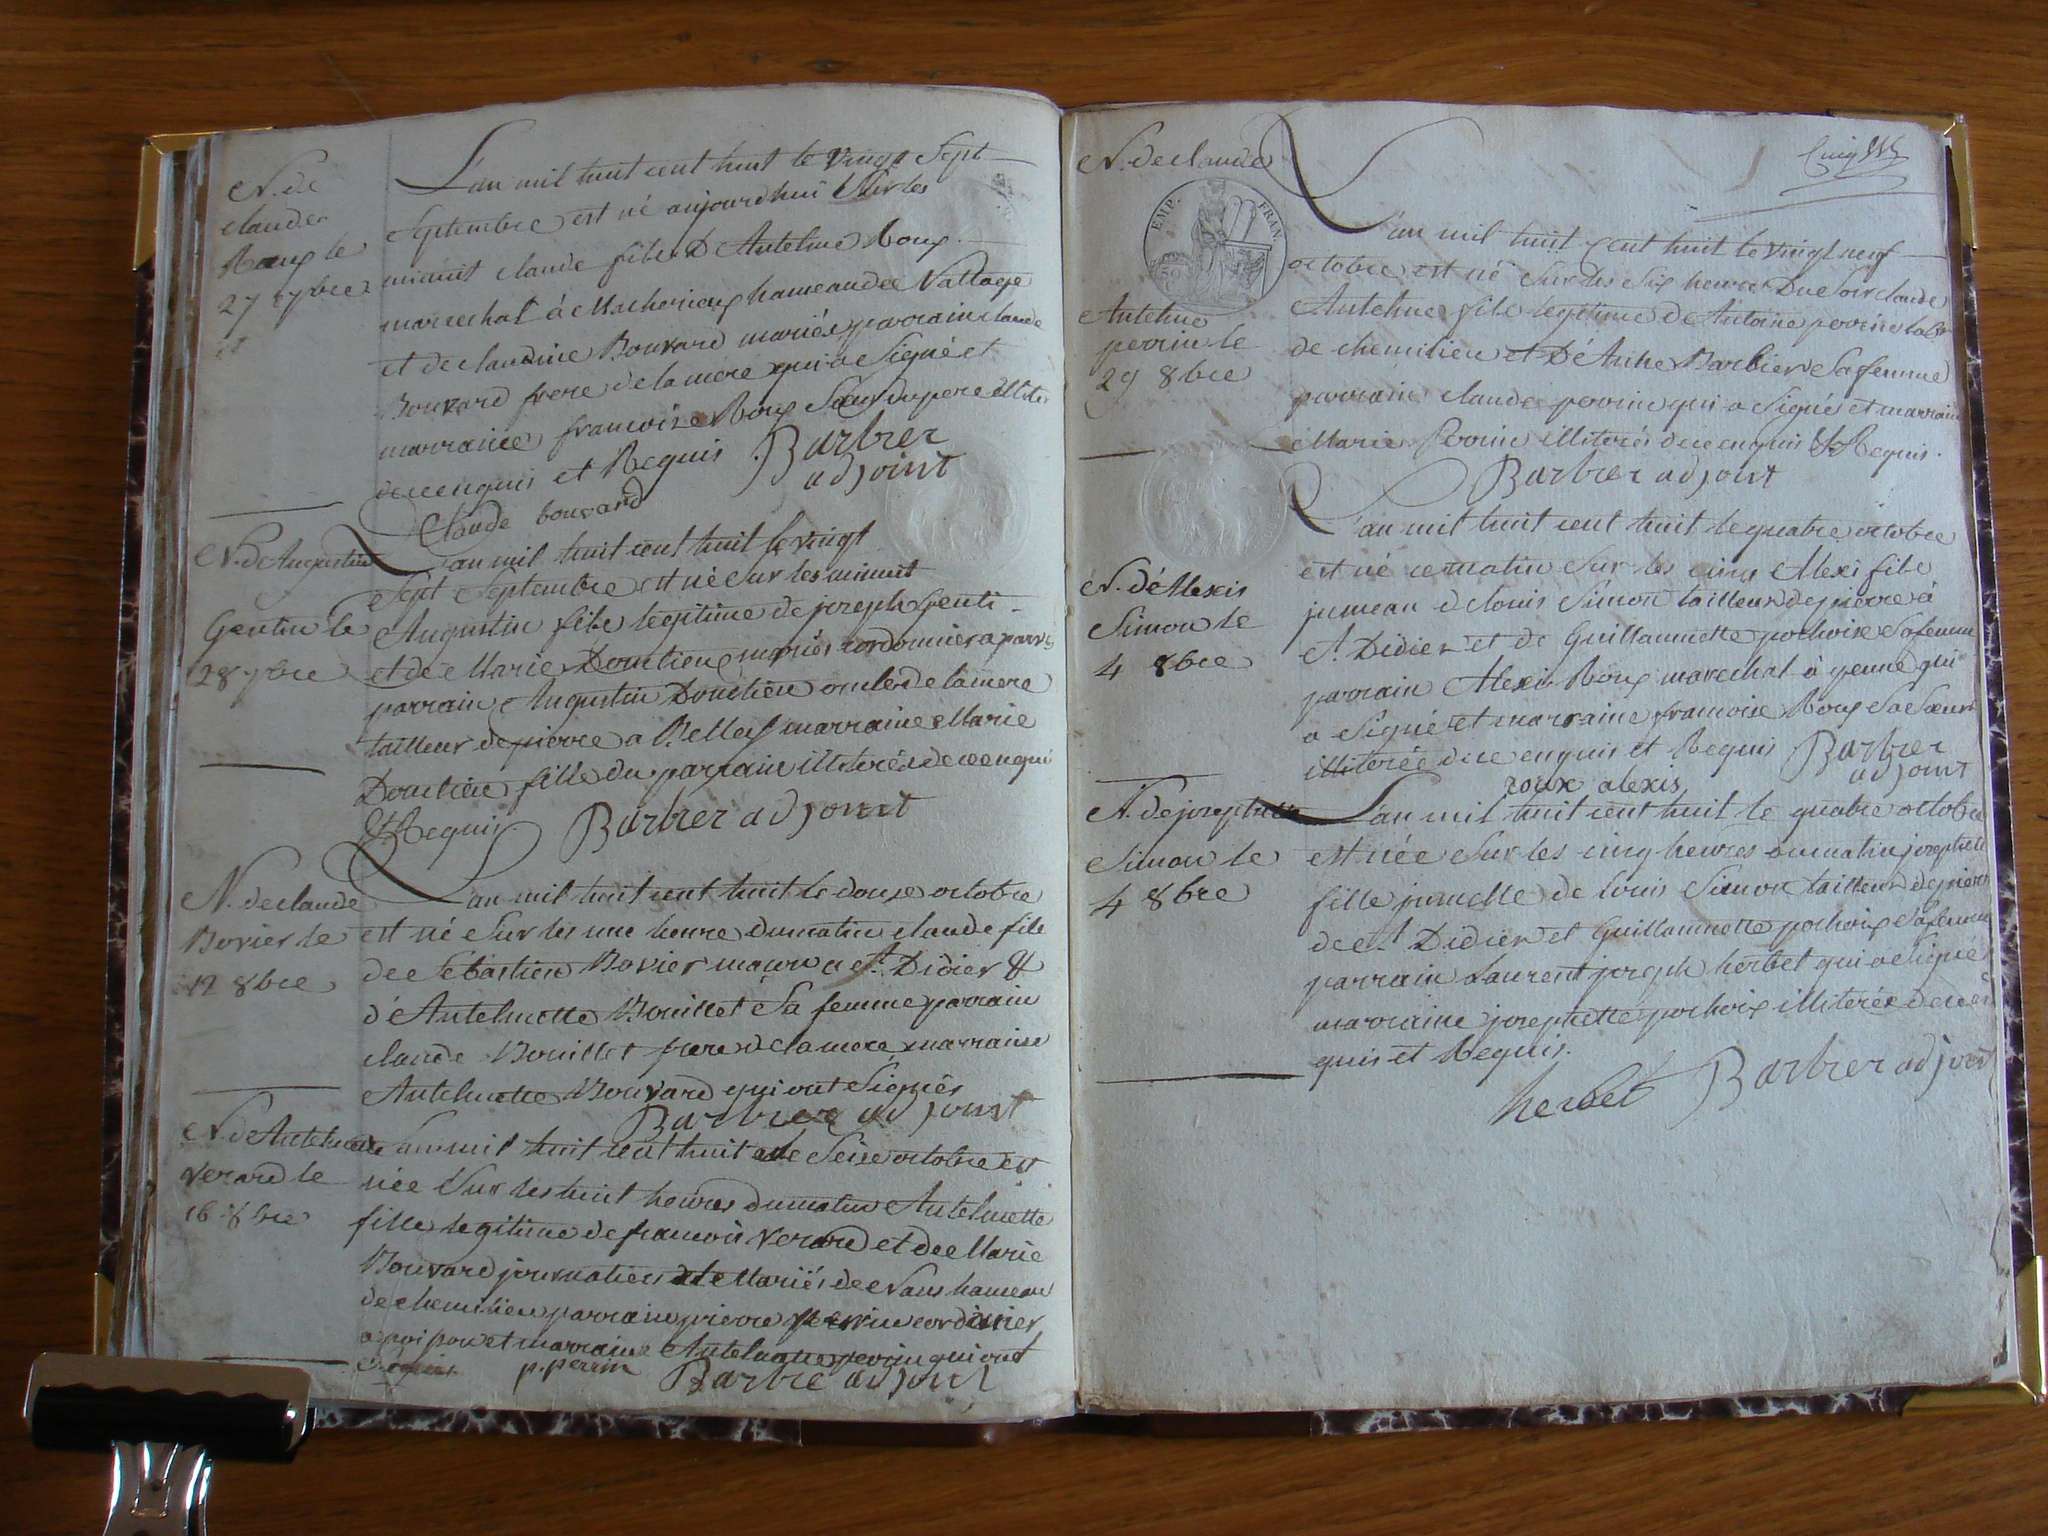 N. de
claude
Roux le
27 7bre
L'an mil huit cent huit le vingt Sept
Septembre est né aujourdhui Sur les
minuit claude fils D'Antelme Roux
marrechal á Macherieux hameau de Nattage
et de claudine Bouvard mariés parrain claude
Bouvard frere de la mere qui a Signé et
marraine francoise Roux Sœur du pere
de ce enquis et Requis. Barbier
adjoint
Claude bouvard
N. de Augustin
Gentin le
28 7bre
L'an mil huit cent huit le vingt
Sept Septembre est né Sur les minuit
Augustin fils legitime de joseph Genti-
et de Marie Douclieu mariés cordonnier a parves
parrain Augustin Douclieu oncle de la mere
tailleur de pierre a Belley marraine Marie
Douclieu fille du parrain illiterés de ce enqui
& Requis Barbier adjoint
N. de claude
Bovier le
12 8bre
L'an mil huit cent huit le douze octobre
est né Sur les une heure du matin claude fils
de Sébastien Bovier macon a St. Didier &
d'Antelmette Bouillet Sa femme parrain
claude Bouillet frere de la mere marraine
Antelmette Bouvard qui ont Signés
Barbier adjoint
N. de Antelmette
Verard le
16 8bre
L'an mil huit cent huit le Seize octobre est
née Sur les huit heures du matin Antelmette
fille legitime de francois Verard et de Marie
Bouvard journalier Mariés de hameau
de chemilieu parrain pierre perrin cordonier
et marraine perrin qui ont
Signés p. perrin Barbie adjoint
N. de claude
EMP. FRAN.
Antelme
perrin le
29 8bre
L'an mil huit cent huit le vingt neuf
octobre est né Sur les Six heures Du Soir claude
Antelme fils legitime de Antoine perrin lab
de chemilieu et D'Anthe Barbier Sa femme
parrain claude perrin qui a Signé et marraine
Marie Perrin illiterés de ce enquis & Requis.
Barbier adjoint
N. d'Alexis
Simon le
4 8bre
L'an mil huit cent huit le quatre octobre
est né ce matin Sur les cinq Alexi fils
jumeau de louis Simon tailleur de pierre á
St. Didier et de Guillaumette pochoix Sa femme
parrain Alexis Roux marechal á yenne qui
a Signé et marraine francoise Roux Sa Sœur
illiterée de ce enquis et Requis Barbier
adjoint
roux alexis
N. de josephette
Simon le
4 8bre
L'an mil huit cent huit le quatre octobre
est née Sur les cinq heures du matin josephette
fille jumelle de louis Simon tailleur de pierre
de St Didier et Guillaumette pochoix Sa femme
parrain Laurent joseph herbet qui a Signé
marraine josephette pochoix illiterée de ce en
quis et Requis.
herbet Barbier adjoint